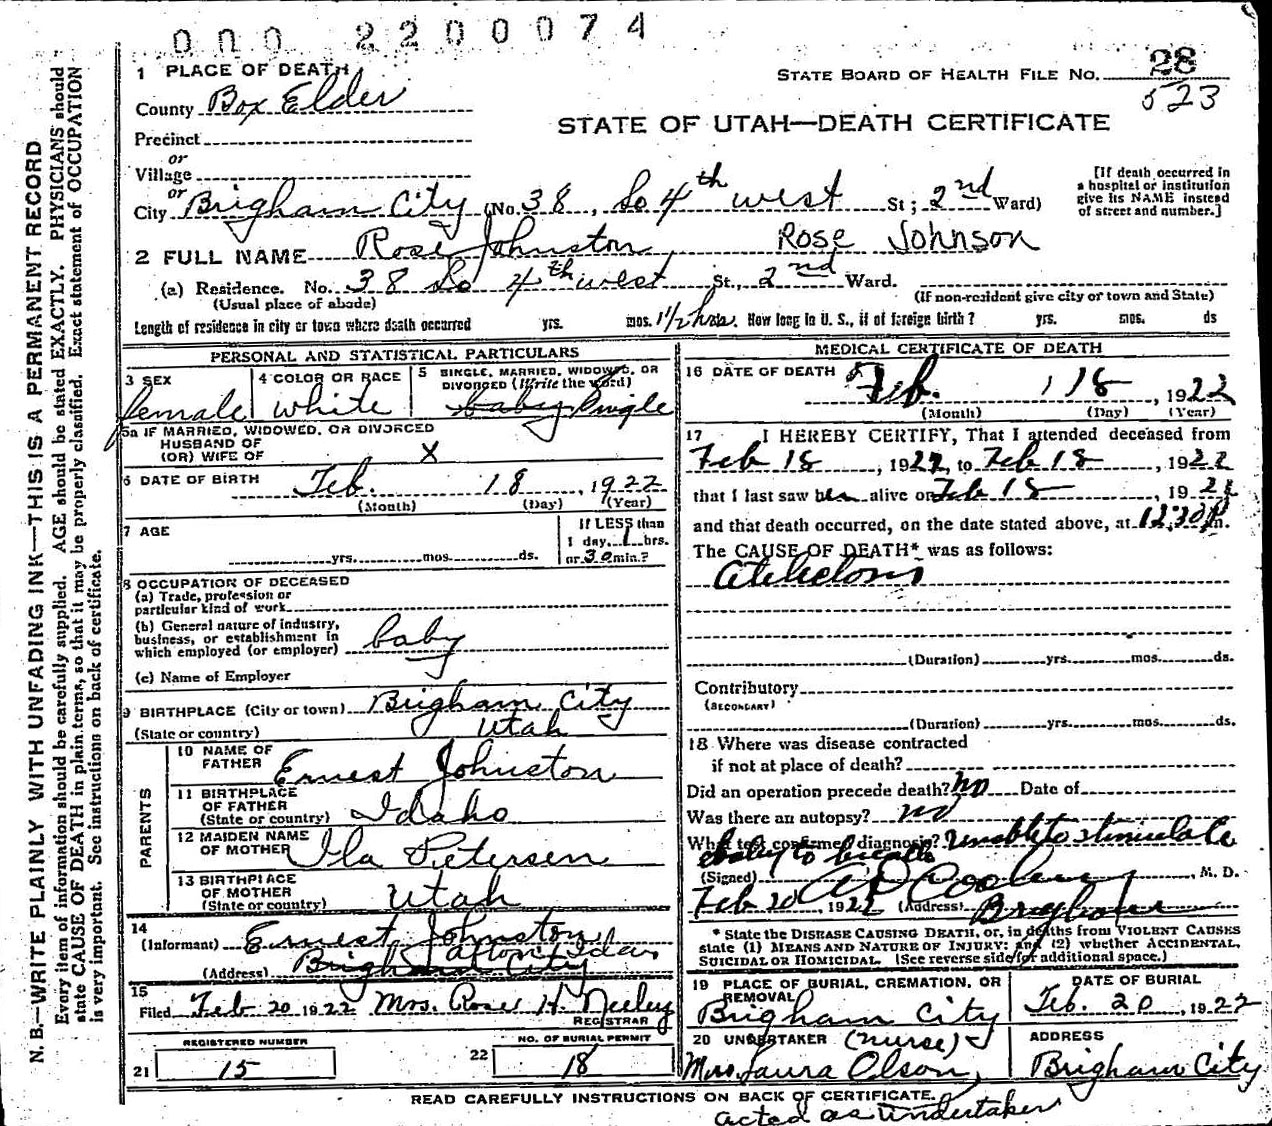 000 2200074
1 PLACE OF DEATH
STATE BOARD OF HEALTH FILE NO. 28
523
County Box Elder
STATE OF UTAH—DEATH CERTIFICATE
Precinct
or
Village
or
City Brigham City (No. 38, So 4th west St; 2nd Ward)
[If death occurred in a hospital or institution give its NAME instead of street and number.]
2 FULL NAME Rose Johnston Rose Johnson
(a) Residence. No. 38 So 4th west St., 2nd Ward.
(Usual place of abode)
(If non-resident give city or town and State)
Length of residence in city or town where death occurred yrs. mos. 1 1/2 hrs. How long in U. S., if of foreign birth? yrs. mos. ds
PERSONAL AND STATISTICAL PARTICULARS
3 SEX
female
4 COLOR OR RACE
white
5 SINGLE, MARRIED, WIDOWED, OR DIVORCED (Write the word)
baby Single
5a IF MARRIED, WIDOWED, OR DIVORCED
HUSBAND OF
(OR) WIFE OF X
6 DATE OF BIRTH Feb. 18, 1922
(Month) (Day) (Year)
7 AGE
yrs. mos. ds.
If LESS than
1 day, 1 hrs.
or 30 min.?
8 OCCUPATION OF DECEASED
(a) Trade, profession or
particular kind of work
(b) General nature of industry,
business, or establishment in
which employed (or employer) baby
(c) Name of Employer
9 BIRTHPLACE (City or town) Brigham City
(State or country) Utah
PARENTS
10 NAME OF
FATHER Ernest Johnston
11 BIRTHPLACE
OF FATHER
(State or country) Idaho
12 MAIDEN NAME
OF MOTHER Ila Petersen
13 BIRTHPLACE
OF MOTHER
(State or country) Utah
14
(Informant) Ernest Johnston
(Address) Brigham City
15
Filed Feb 20 1922 Mrs. Rose H. Neeley
REGISTRAR
REGISTERED NUMBER
21 15
NO. OF BURIAL PERMIT
22 18
MEDICAL CERTIFICATE OF DEATH
16 DATE OF DEATH Feb. 18, 1922
(Month) (Day) (Year)
17 I HEREBY CERTIFY, That I attended deceased from
Feb 18, 1922, to Feb 18, 1922
that I last saw her alive on Feb 18, 1922
and that death occurred, on the date stated above, at 12:30 P m.
The CAUSE OF DEATH* was as follows:
(Duration) yrs. mos. ds.
Contributory
(SECONDARY)
(Duration) yrs. mos. ds.
18 Where was disease contracted
if not at place of death?
Did an operation precede death? no Date of
Was there an autopsy? no
What test confirmed diagnosis? Unable to stimulate
baby to breathe
(Signed) M. D.
Feb 20, 1922 (Address) Brigham
* State the DISEASE CAUSING DEATH, or, in deaths from VIOLENT CAUSES
state (1) MEANS AND NATURE OF INJURY: and (2) whether ACCIDENTAL,
SUICIDAL OR HOMICIDAL. (See reverse side for additional space.)
19 PLACE OF BURIAL, CREMATION, OR
REMOVAL
Brigham City
DATE OF BURIAL
Feb. 20, 1922
20 UNDERTAKER (nurse)
Mrs. Laura Olson,
ADDRESS
Brigham City
READ CAREFULLY INSTRUCTIONS ON BACK OF CERTIFICATE.
acted as undertaker
N. B.—WRITE PLAINLY WITH UNFADING INK—THIS IS A PERMANENT RECORD
Every item of information should be carefully supplied. AGE should be stated EXACTLY. PHYSICIANS should
state CAUSE OF DEATH in plain terms, so that it may be properly classified. Exact statement of OCCUPATION
is very important. See instructions on back of certificate.